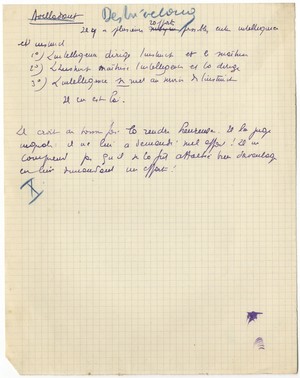 Desbiveloing
Il y a plusieurs rapports possibles entre intelligence
et instinct
1°) L'intelligence dirige l'instinct et le maîtrise
2°) L'instinct maîtrise l'intelligence et la dirige
3°) L'intelligence se met au service de l'instinct
Il en est là.
Il croit au bonheur la rendre heureuse. Il la juge
il ne lui a demandé nul effort! Il ne
comprend pas qu'il se la fût attachée bien davantage
en lui demandant un effort!
X